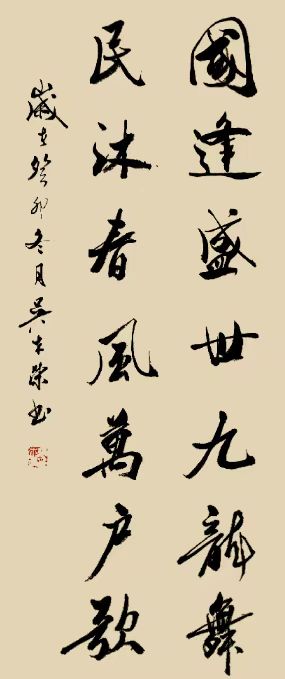 國逢盛世九龍舞
民沐春風萬户歌
歲在癸卯冬月吴士榮书